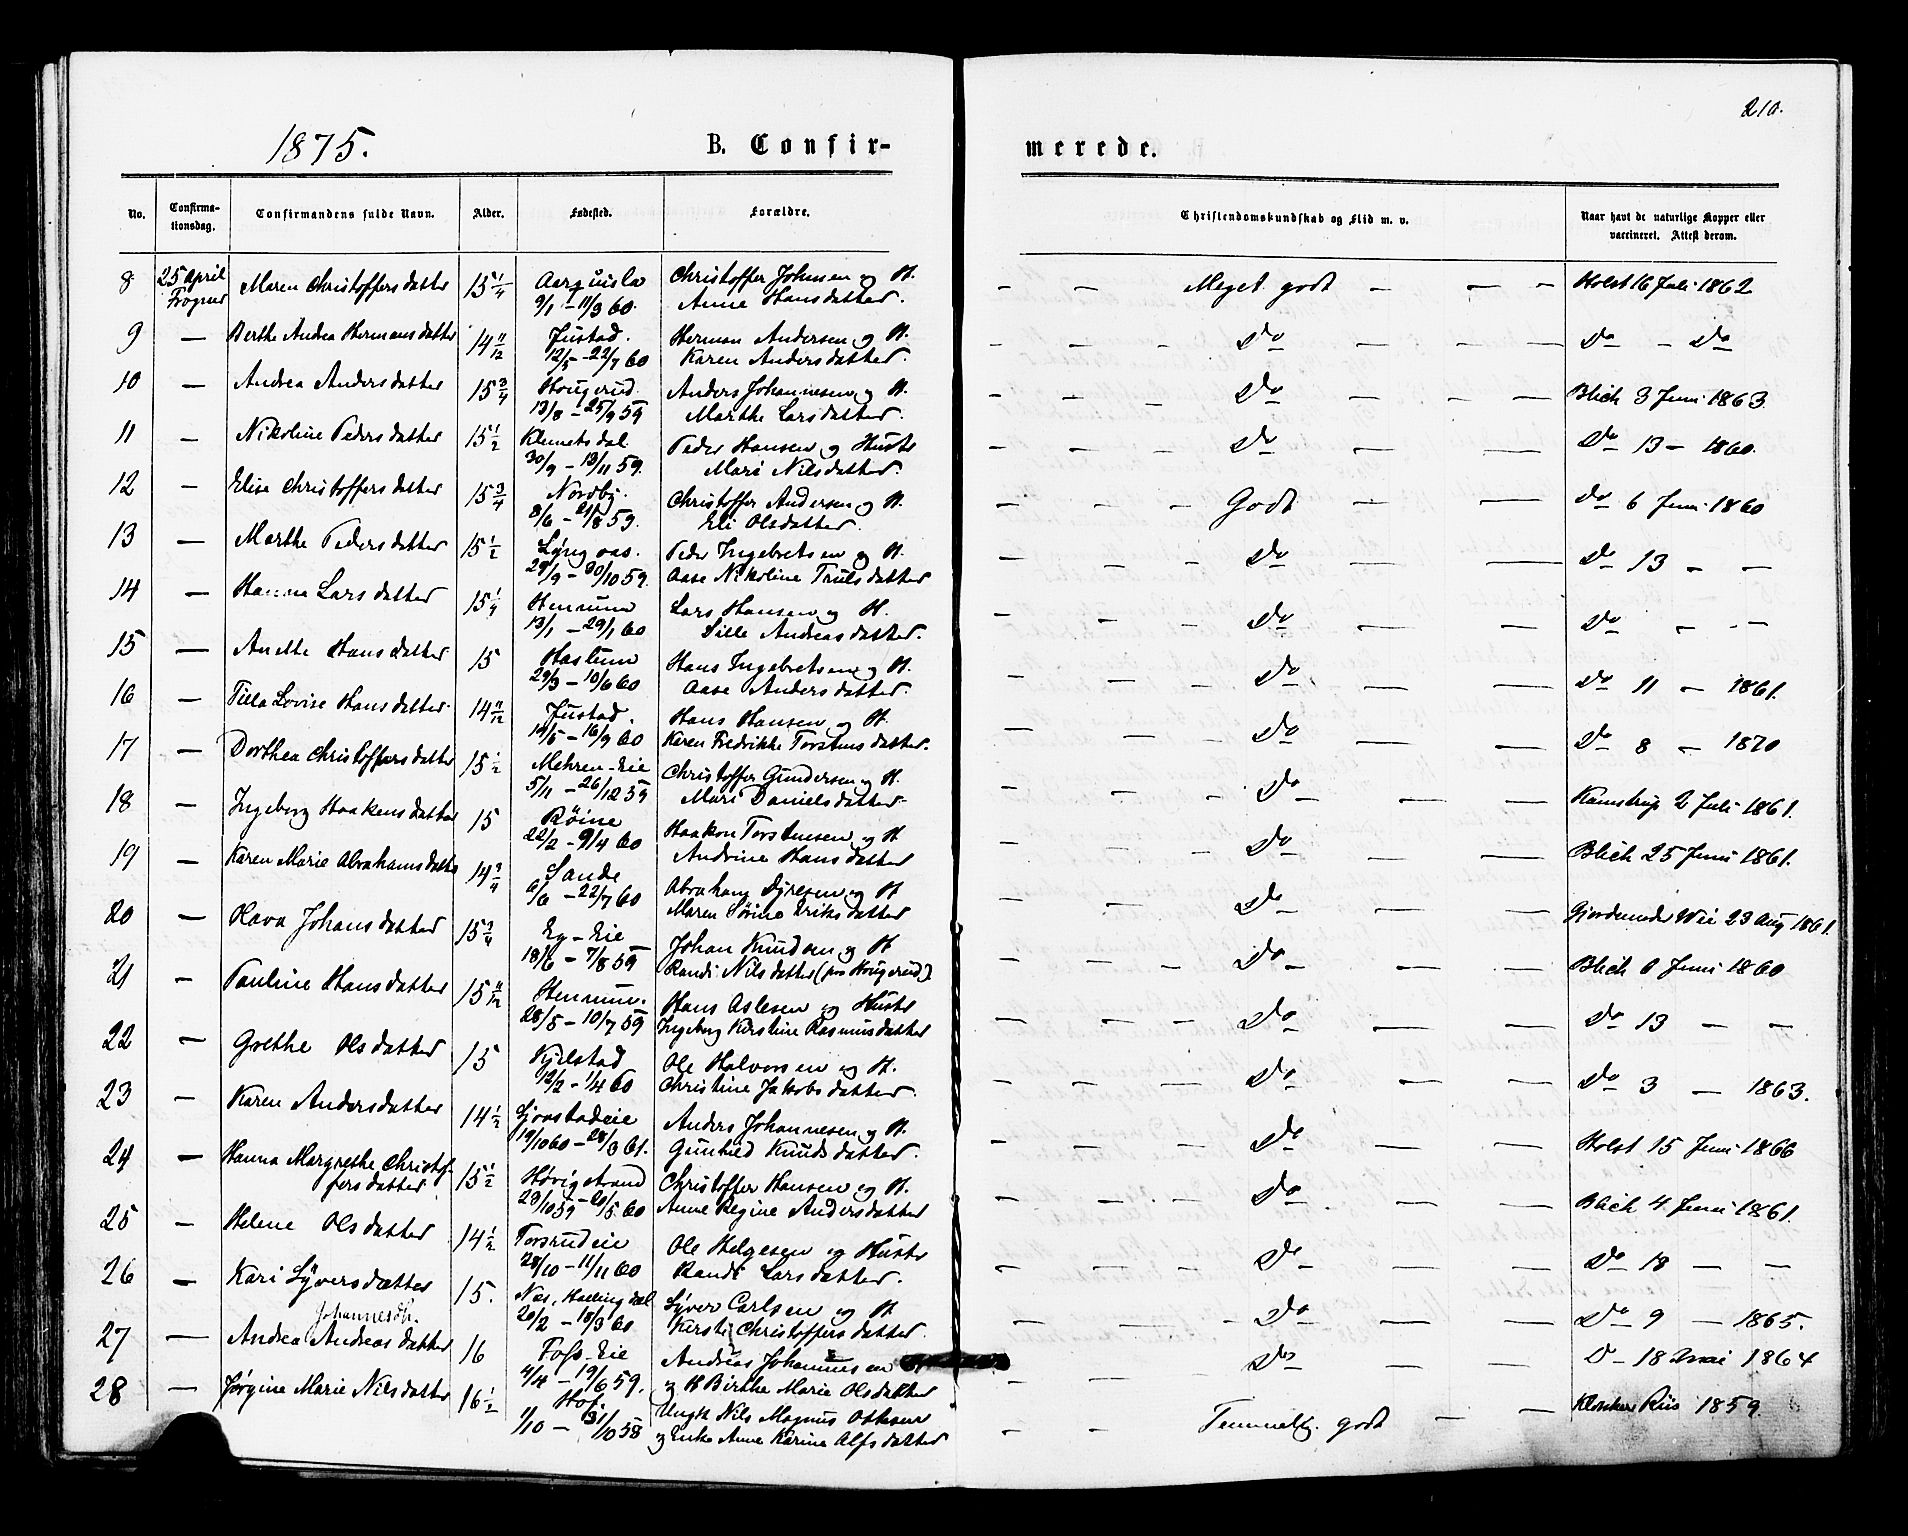 210.
1875.
B. Confir-
merede.
No.
Confirma-
tionsdag.
Confirmandens fulde Navn.
Alder.
Fødested.
Forældre.
Christendomskundskab og Flid m. v.
Naar havt de naturlige Kopper eller
vaccineret. Attest derom.
8 25 April Maren Christoffersdatter 15 1/4 Christoffer Johnsen og H. — — Meget godt — — — Holst 16 Juli 1862
Frogner 9/1 – 11/3 60. Anne Hansdatter.
9 — Berthe Andrea Hermansdatter 14 11/12 Justad. Herman Andersen og H. — — — Do — — — Do — Do
12/5 – 22/7 60 Karen Andersdatter.
10 — Andrea Andersdatter 15 3/4 Hougerud. Anders Johannesen og H. — — — Do — — — Blich 3 Juni 1863.
13/8 – 25/9 59 Marthe Larsdatter.
11 — Nikoline Pedersdatter 15 1/2 Klemetsdal. Peder Hansen og Hustr — — — Do — — Do 13 — 1860.
30/9 – 13/11 59. Mari Nilsdatter.
12 — Elise Christoffersdatter 15 3/4 Nordby. Christoffer Andersen og H. — — — Godt — — do 6 Juni 1860
8/6 – 21/8 59. Eli Olsdatter.
13 — Marthe Pedersdatter 15 1/2 Lyngaas. Peder Ingebretsen og H. — — — Do — — Do 13 — —
29/9 – 30/10 59. Aase Nikoline Trulsdatter
14 — Hanna Larsdatter 15 1/4 Hennum Lars Hansen og H. — — — Do — — Do — —
13/1 – 29/1 60 Sille Andreasdatter.
15 — Anette Hansdatter 15 Haslum Hans Ingebretsen og H. — — — Do — — Do 11 — 1861.
29/3 – 10/6 60 Aase Andersdatter.
16 — Tilla Lovise Hansdatter 14 11/12 Justad. Hans Hansen og H. — — — Do — — Do 8 — 1870
14/5 – 16/9 60 Karen Fredrikke Torstensdatter.
17 — Dorthea Christoffersdatter 15 1/2 Mehren-Eie Christoffer Gundersen og H. — — — Do — — Kamstrup 2 Juli 1861.
5/11 – 26/12 59 Mari Danielsdatter.
18 — Ingeborg Haakensdatter 15 Røine Haakon Torstensen og H — — — Do — — Blich 25 Juni 1861.
22/2 – 9/4 60 Andrine Hansdatter
19 — Karen Marie Abrahamsdatter 14 3/4 Sande Abraham Dyresen og H — — — Do — — Gjordemoder Wii 23 Aug 1861.
6/6 – 22/7 60 Maren Sørine Eriksdatter
20 — Olava Johansdatter 15 3/4 Eg-Eie Johan Knudsen og H — — — Do — — Blich 6 Juni 1860
18/6 – 7/8 59 Randi Nilsdatter (paa Hougerud)
21 — Pauline Hansdatter 15 11/12 Hennum. Hans Aslesen og Hustr — — — Do — — Do 13 — —
28/5 – 10/7 59 Ingeborg Kirstine Rasmusdatter
22 — Grethe Olsdatter 15 Kjelstad Ole Halvorsen og H. — — — Do — — Do 3 — 1863.
12/2 – 1/4 60 Christine Jakobsdatter.
23 — Karen Andersdatter 14 1/2 Anders Johannesen og H. — — — Do — — Holst 15 Juni 1866
19/10 60 – 28/3 61. Gunhild Knudsdatter.
24 — Hanna Margrethe Christof- 15 1/2 Høvigstrand Christoffer Hansen og H. — — — Do — — Blich 4 Juni 1861.
fersdatter 29/10 59 – 20/5 60 Anne Regine Andersdatter
25 — Helene Olsdatter 14 1/2 Torsrudeie Ole Helgesen og Hustr — — — Do — — Do 18 — —
28/10 – 11/11 60 Randi Larsdatter.
26 — Kari Syversdatter 15. Næs, Hallingdal Syver Carlsen og H — — — Do — — Do 9 — 1865.
20/2 – 18/3 60 Kirsti Christoffersdatter.
Johannesdtr.
27 — Andrea Andreasdatter 16 Foss-Eie Andreas Johannesen Do D — 18 Mai 1864
4/4 – 19/6 59. og H Birthe Marie Olsdatter
28 — Jørgine Marie Nilsdatter 16 1/2 Hof. Ungk Nils Magnus — — Temmelig godt — — Klokker Riis 1859.
1/10 – 31/10 58 og Enke Anne Karine Alfsdatter